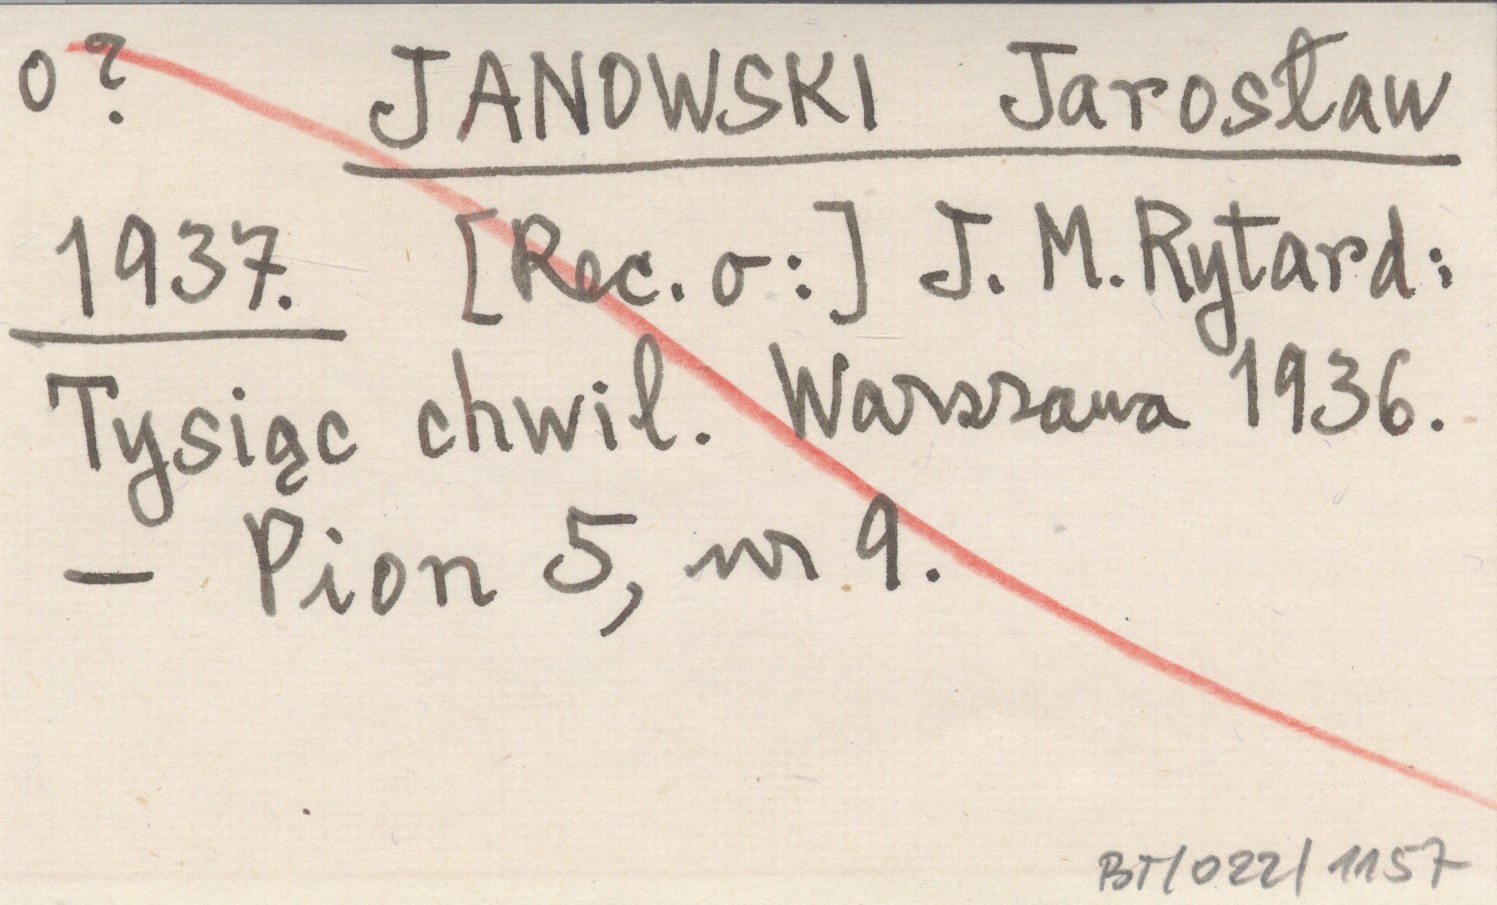 o? JANOWSKI Jarosław
1937. [Rec. o:] J. M. Rytard:
Tysiąc chwil. Warszawa 1936.
— Pion 5, nr 9.
BT/022/1157